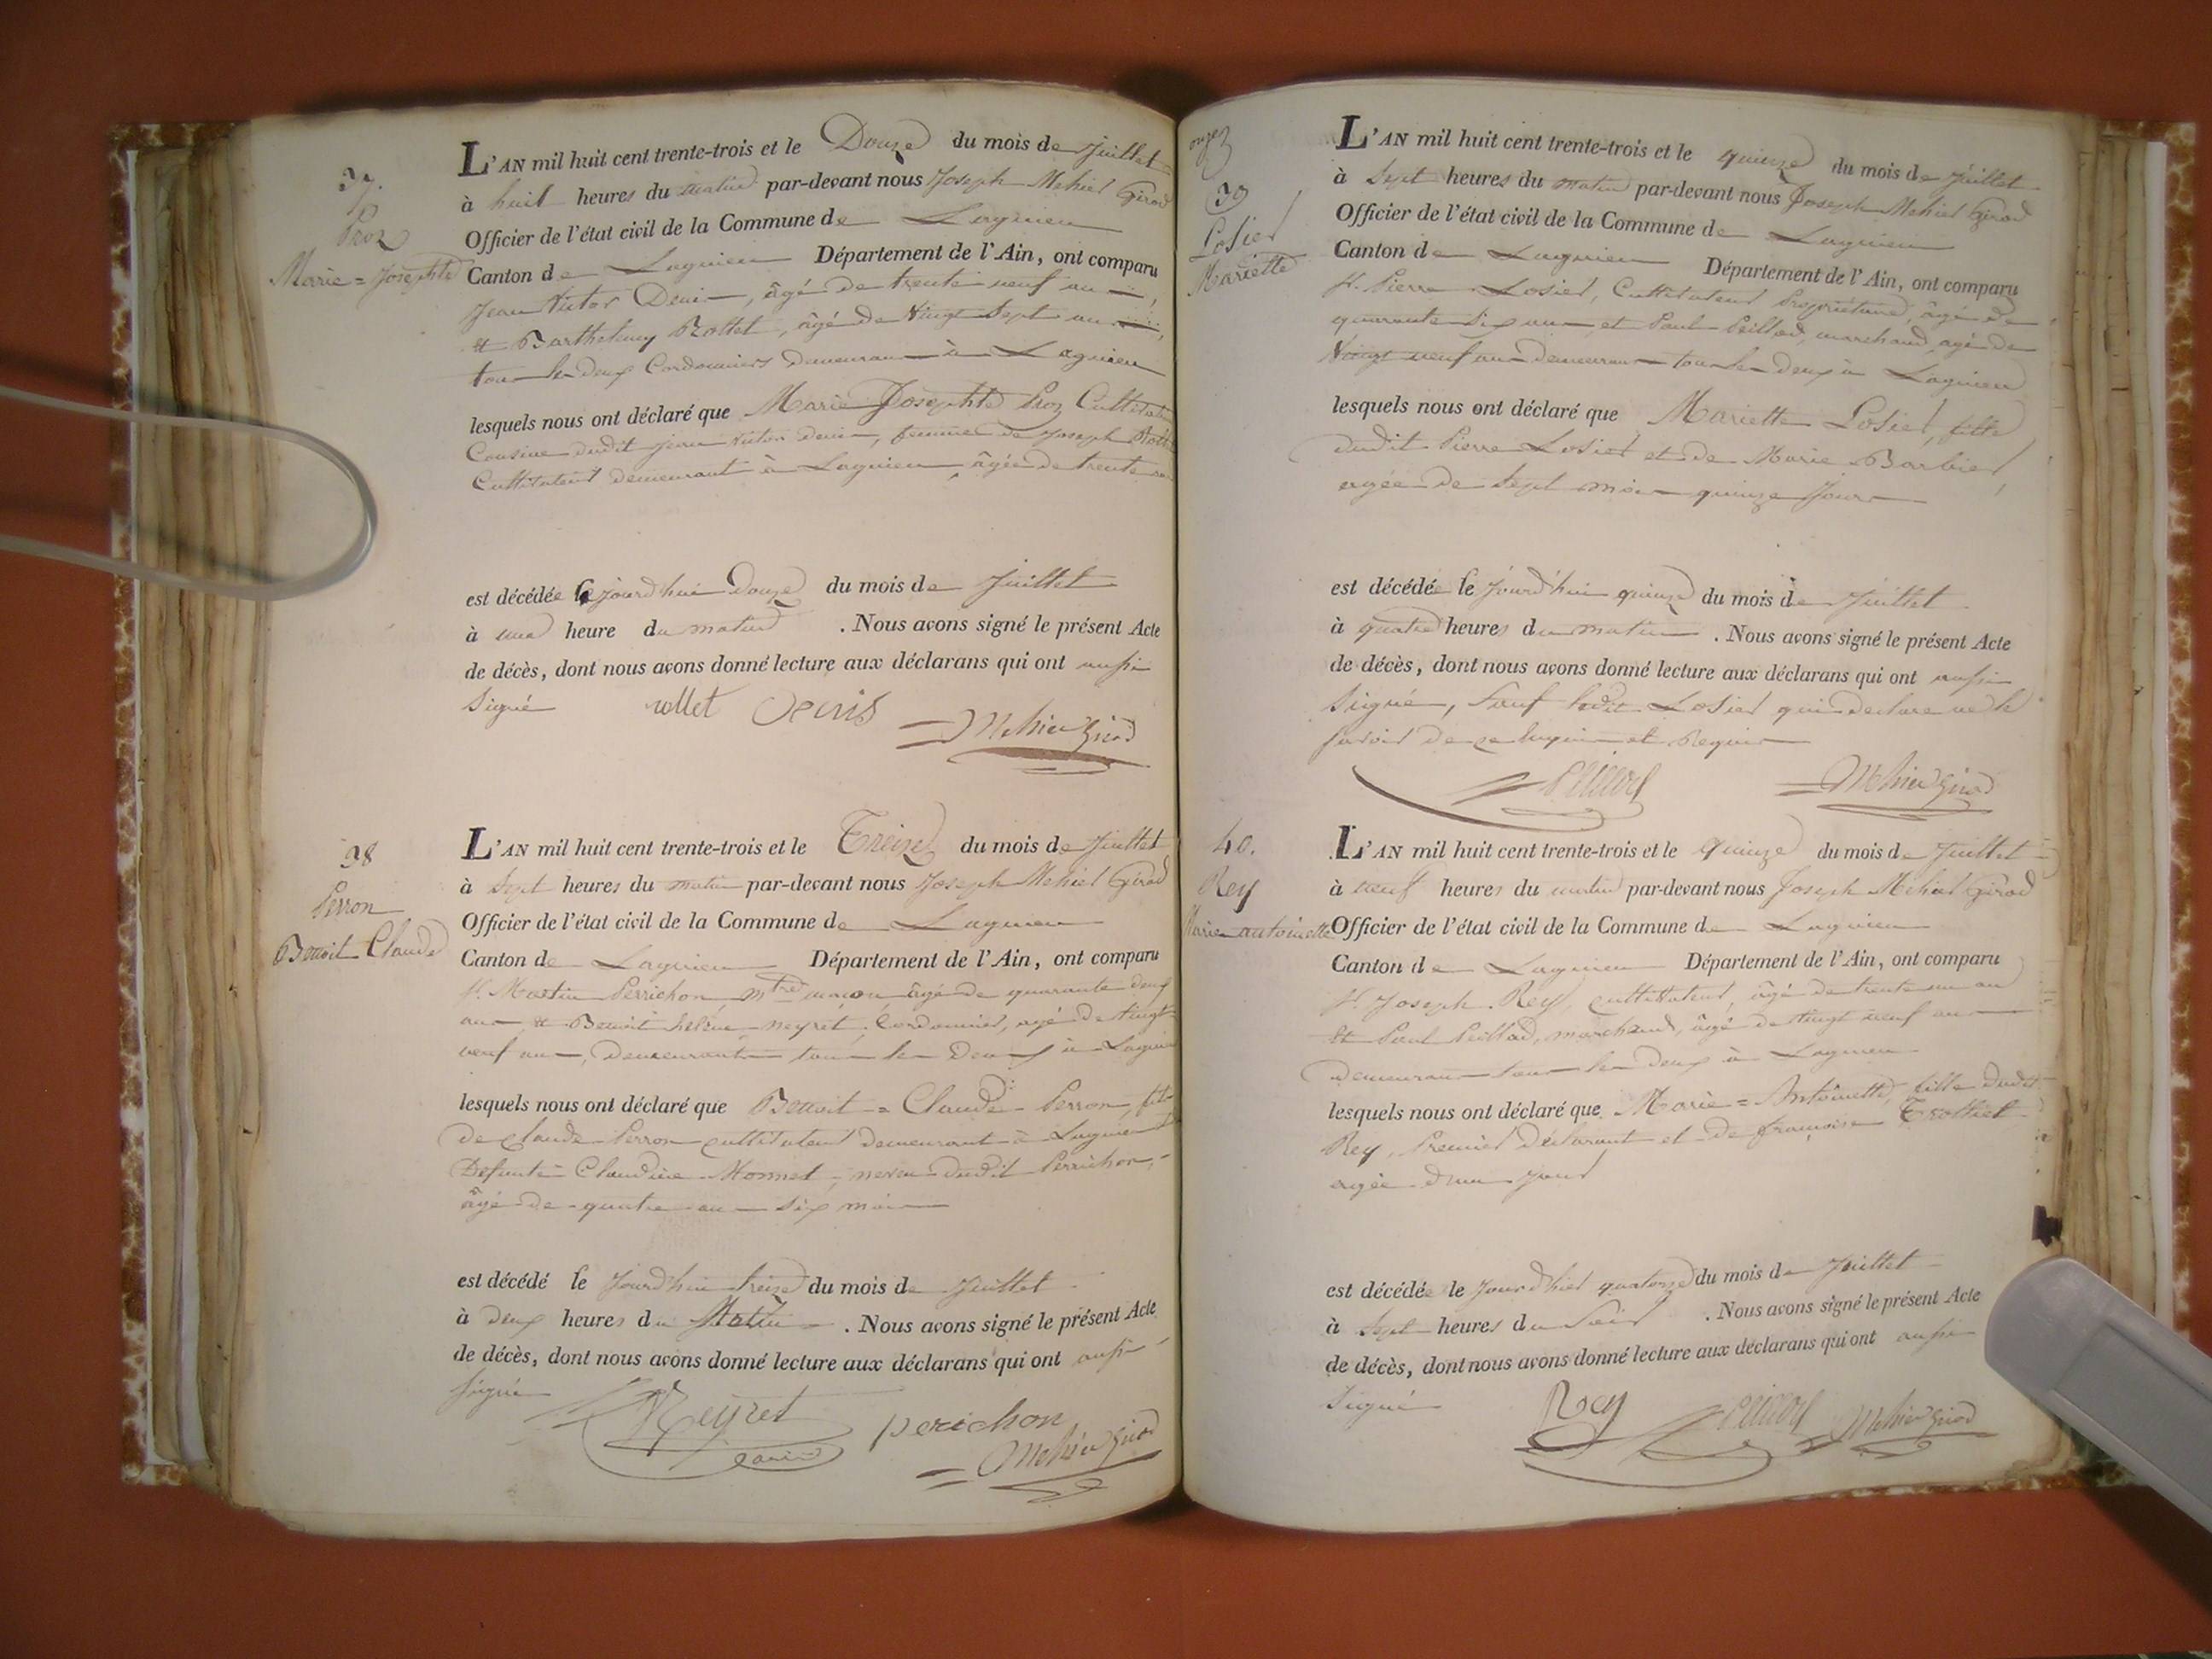 37.
Proz
Marie = Josephte
L'AN mil huit cent trente-trois et le Douze du mois de Juillet
à huit heures du matin par-devant nous Joseph Mehier Girod
Officier de l'état civil de la Commune de Lagnieu
Canton de Lagnieu Département de l'Ain, ont comparu
Jean Victor Denis, âgé de trente neuf ans,
et Barthelemy Rollet, âgé de Vingt Sept ans,
tous les deux Cordonniers demeurans à Lagnieu
lesquels nous ont déclaré que Marie Josephte Proz Cultivatrice
Cousine dudit Jean Victor denis, femme de Joseph
Cultivateur demeurant à Lagnieu, âgée de trente
est décédée le jourd'hui Douze du mois de Juillet
à une heure du matin. Nous avons signé le présent Acte
de décès, dont nous avons donné lecture aux déclarans qui ont aussi
Signé rollet Denis Mehier Girod
38
Perron
Benoit Claude
L'AN mil huit cent trente-trois et le Treize du mois de Juillet
à Sept heures du matin par-devant nous Joseph Mehier Girod
Officier de l'état civil de la Commune de Lagnieu
Canton de Lagnieu Département de l'Ain, ont comparu
Sr. Martin Perrichon mtre maçon, âgé de quarante deux
ans, et Benoit helène neyret, Cordonnier, agé de Vingt
neuf ans, Demeurants tous les Deux à Lagnieu
lesquels nous ont déclaré que Benoit = Claude Perron, fils
de Claude Perron cultivateur demeurant à Lagnieu et
Defunte Claudine Monnet, neveu dudit Perrichon,
âgé de quatre ans six mois
est décédé le Jourd'hui treize du mois de Juillet
à deux heures du Matin. Nous avons signé le présent Acte
de décès, dont nous avons donné lecture aux déclarans qui ont aussi
signé Neyret perichon
Mehier Girod
onze
39
Losier
Mariette
L'AN mil huit cent trente-trois et le quinze du mois de Juillet
à Sept heures du matin par-devant nous Joseph Mehier Girod
Officier de l'état civil de la Commune de Lagnieu
Canton de Lagnieu Département de l'Ain, ont comparu
Sr. Pierre Losier, Cultivateur Propriétaire, âgé de
quarante Six ans, et Paul Peillod, marchand, agé de
Vingt neuf ans Demeurans tous les deux à Lagnieu
lesquels nous ont déclaré que Mariette Losier, fille
dudit Pierre Losier et de Marie Barbier,
agée de Sept mois quinze Jours
est décédée le Jourd'hui quinze du mois de Juillet
à quatre heures du matin. Nous avons signé le présent Acte
de décès, dont nous avons donné lecture aux déclarans qui ont aussi
Signé, Sauf ledit Losier qui déclare ne le
savoir de ce Enquis et Requis
Peillod Mehier Girod
40.
Rey
Marie antoinette
L'AN mil huit cent trente-trois et le quinze du mois de Juillet
à neuf heures du matin par-devant nous Joseph Mehier Girod
Officier de l'état civil de la Commune de Lagnieu
Canton de Lagnieu Département de l'Ain, ont comparu
Sr. Joseph Rey, cultivateur, âgé de trente un an
et Paul Peillod, marchand, âgé de Vingt neuf ans
Demeurans tous les deux à Lagnieu
lesquels nous ont déclaré que Marie = Antoinette, fille dudit
Rey, Premier déclarant et de françoise Trolliet
agée d'un jour
est décédée le Jourd'hier quatorze du mois de Juillet
à Sept heures du Soir. Nous avons signé le présent Acte
de décès, dont nous avons donné lecture aux déclarans qui ont aussi
Signé Rey Peillod Mehier Girod